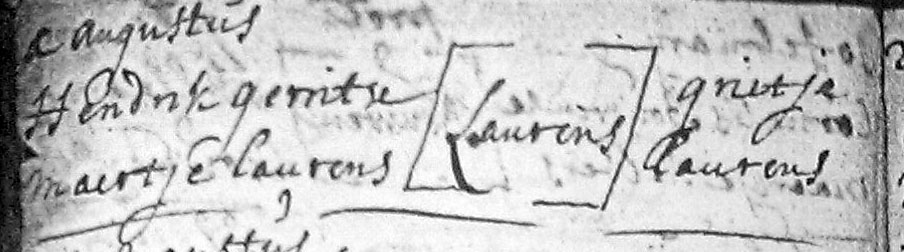 augustus
Hendrik gerritse [Laurens] grietje
maertje laurens laurens